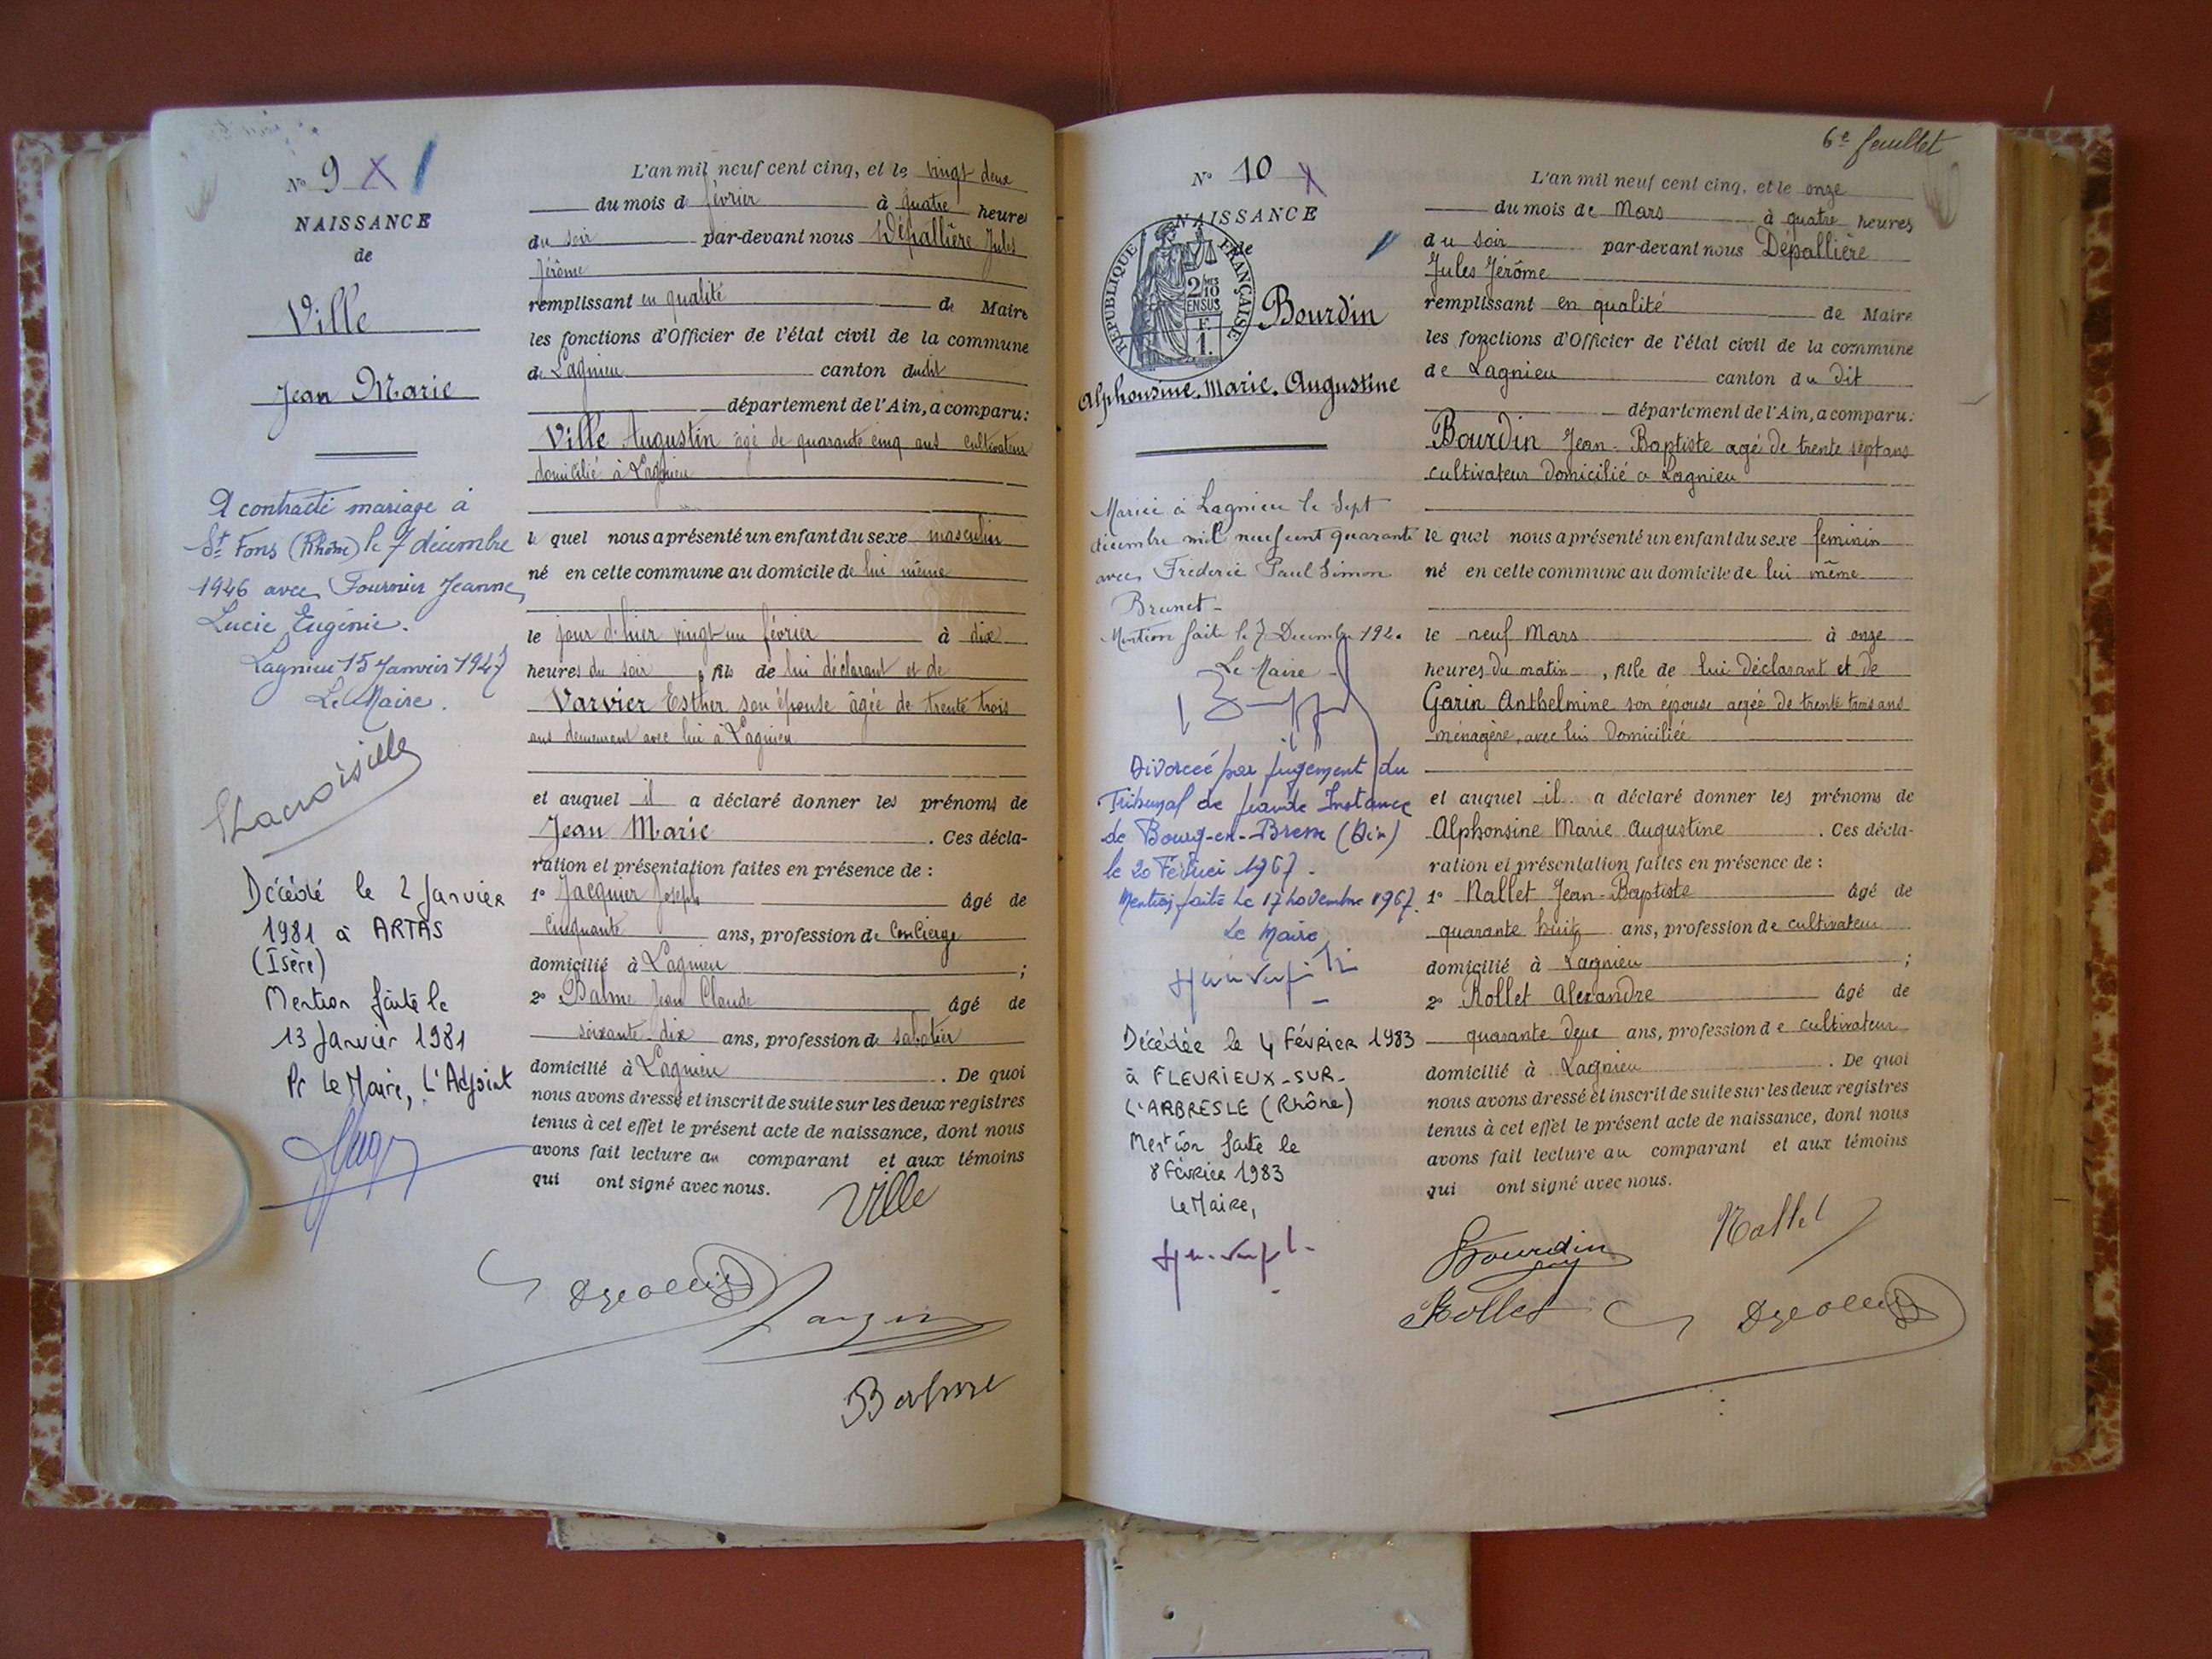 N° 9 X
NAISSANCE
de
Ville
Jean Marie
A contracté mariage à
St Fons (Rhône) le 7 décembre
1946 avec Fournier Jeanne
Lucie Eugénie.
Lagnieu 15 Janvier 1947
Le Maire.
Lacroisille
Décédé le 2 Janvier
1981 à ARTAS
(Isère)
Mention faite le
13 Janvier 1981
Pr Le Maire, L'Adjoint
L'an mil neuf cent cinq, et le vingt deux
du mois de février à quatre heures
du soir par-devant nous Dépallière Jules
Jérôme
remplissant en qualité de Maire
les fonctions d'Officier de l'état civil de la commune
de Lagnieu canton dudit
département de l'Ain, a comparu:
Ville Augustin âgé de quarante cinq ans cultivateur
domicilié à Lagnieu
le quel nous a présenté un enfant du sexe masculin
né en cette commune au domicile de lui même
le jour d'hier vingt un février à dix
heures du soir, fils de lui déclarant et de
Varvier Esther son épouse âgée de trente trois
ans demeurant avec lui à Lagnieu
et auquel il a déclaré donner les prénoms de
Jean Marie. Ces décla-
ration et présentation faites en présence de :
1° Jacquier Joseph âgé de
cinquante ans, profession de Concierge
domicilié à Lagnieu ;
2° Balme Jean Claude âgé de
soixante dix ans, profession de sabotier
domicilié à Lagnieu. De quoi
nous avons dressé et inscrit de suite sur les deux registres
tenus à cet effet le présent acte de naissance, dont nous
avons fait lecture au comparant et aux témoins
qui ont signé avec nous.
Ville
Balme
6e feuillet
N° 10 X
NAISSANCE
de
REPUBLIQUE FRANÇAISE
2/10 MES
EN SUS
F.
1.
Bourdin
Alphonsine. Marie. Augustine
Mariée à Lagnieu le Sept
décembre mil neuf cent quarante
avec Frederic Paul Simon
Brunet -
Mention faite le 7 Decembre
Le Maire -
Divorcée par jugement du
Tribunal de Grande Instance
de Bourg-en-Bresse (Ain)
le 20 Février 1967.
Mention faite Le 17 Novembre 1967.
Le Maire
Décédée le 4 Février 1983
à FLEURIEUX-SUR-
L'ARBRESLE (Rhône)
Mention faite le
8 Février 1983
Le Maire,
L'an mil neuf cent cinq, et le onze
du mois de Mars à quatre heures
du soir par-devant nous Dépallière
Jules Jérôme
remplissant en qualité de Maire
les fonctions d'Officier de l'état civil de la commune
de Lagnieu canton du dit
département de l'Ain, a comparu:
Bourdin Jean-Baptiste agé de trente sept ans
cultivateur domicilié a Lagnieu
le quel nous a présenté un enfant du sexe feminin
né en cette commune au domicile de lui même
le neuf Mars à onze
heures du matin, fille de lui déclarant et de
Garin Anthelmine son épouse agée de trente trois ans
ménagère, avec lui domiciliée
et auquel il a déclaré donner les prénoms de
Alphonsine Marie Augustine. Ces décla-
ration et présentation faites en présence de :
1° Nallet Jean-Baptiste âgé de
quarante huit ans, profession de cultivateur
domicilié à Lagnieu ;
2° Rollet Alexandre âgé de
quarante deux ans, profession de cultivateur
domicilié à Lagnieu. De quoi
nous avons dressé et inscrit de suite sur les deux registres
tenus à cet effet le présent acte de naissance, dont nous
avons fait lecture au comparant et aux témoins
qui ont signé avec nous.
Bourdin Nallet
Rollet